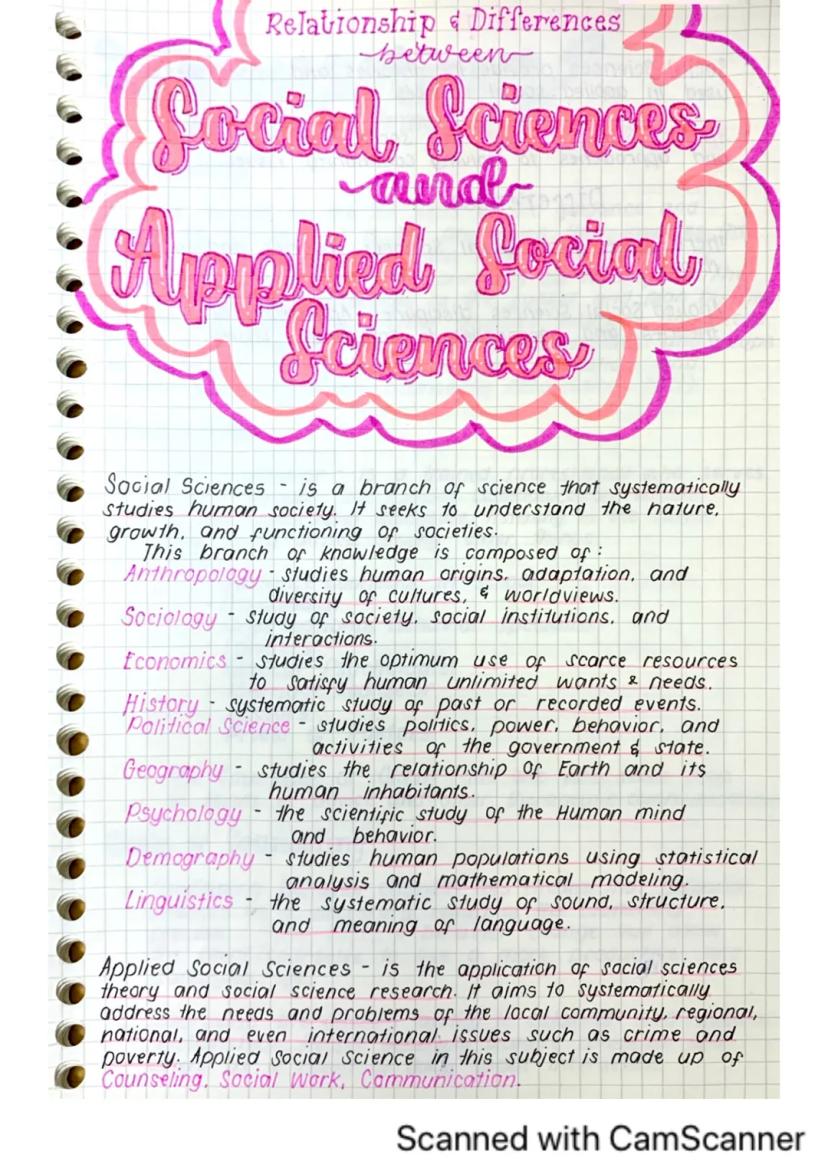 Relationship & Differences
between
Social Sciences
and
Applied Social
Sciences
Social Sciences - is a branch of science that systematically
studies human society. It seeks to understand the nature,
growth, and functioning of societies.
This branch of knowledge is composed of :
Anthropology - studies human origins, adaptation, and
diversity of cultures, & worldviews.
Sociology - study of society, social institutions, and
interactions.
Economics - studies the optimum use of scarce resources
to satisfy human unlimited wants & needs.
History - systematic study of past or recorded events.
Political Science - studies politics, power, behavior, and
activities of the government & state.
Geography - studies the relationship of Earth and its
human inhabitants.
Psychology - the scientific study of the Human mind
and behavior.
Demography - studies human populations using statistical
analysis and mathematical modeling.
Linguistics - the systematic study of sound, structure,
and meaning of language.
Applied Social Sciences - is the application of social sciences
theory and social science research. It aims to systematically
address the needs and problems of the local community, regional,
national, and even international issues such as crime and
poverty. Applied Social Science in this subject is made up of
Counseling, Social Work, Communication.
Scanned with CamScanner